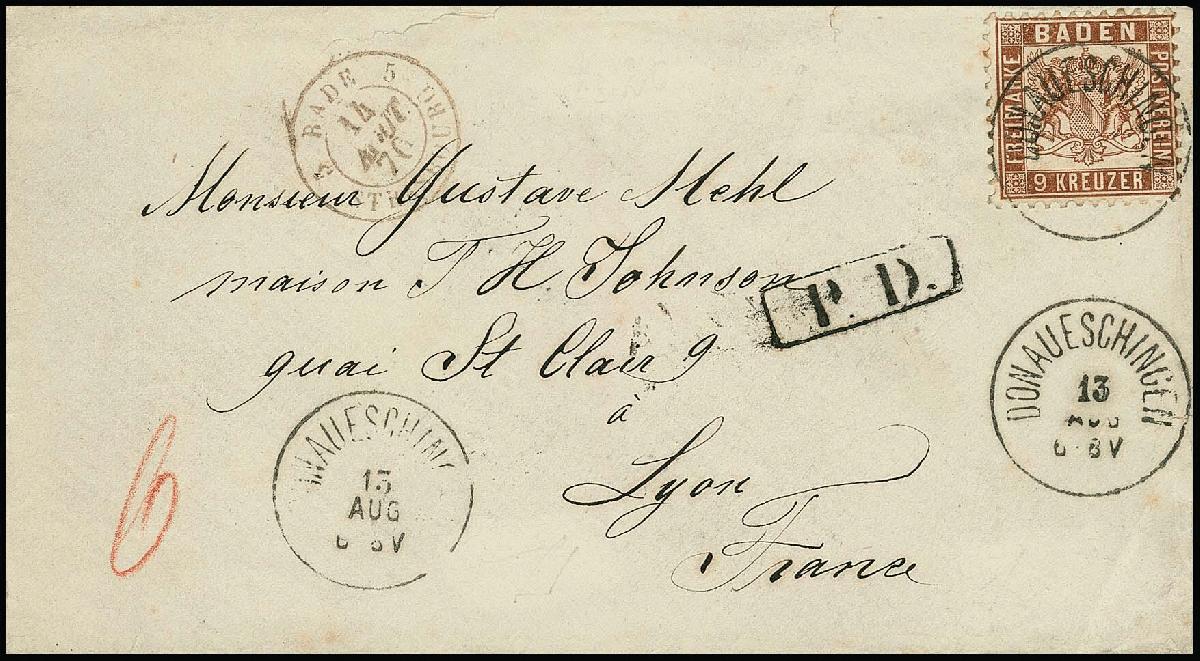 BADEN
FREIMARKE
POSTVEREIN
9 KREUZER
3 BADE 5
14
AOUT
Monsieur Gustave Mehl
maison T H Johnson
P. D.
quai St Clair 9
à
Lyon
France
DONAUESCHINGEN
13
AUG
6-8V
NAUESCHIN
13
AUG
6 8V
6